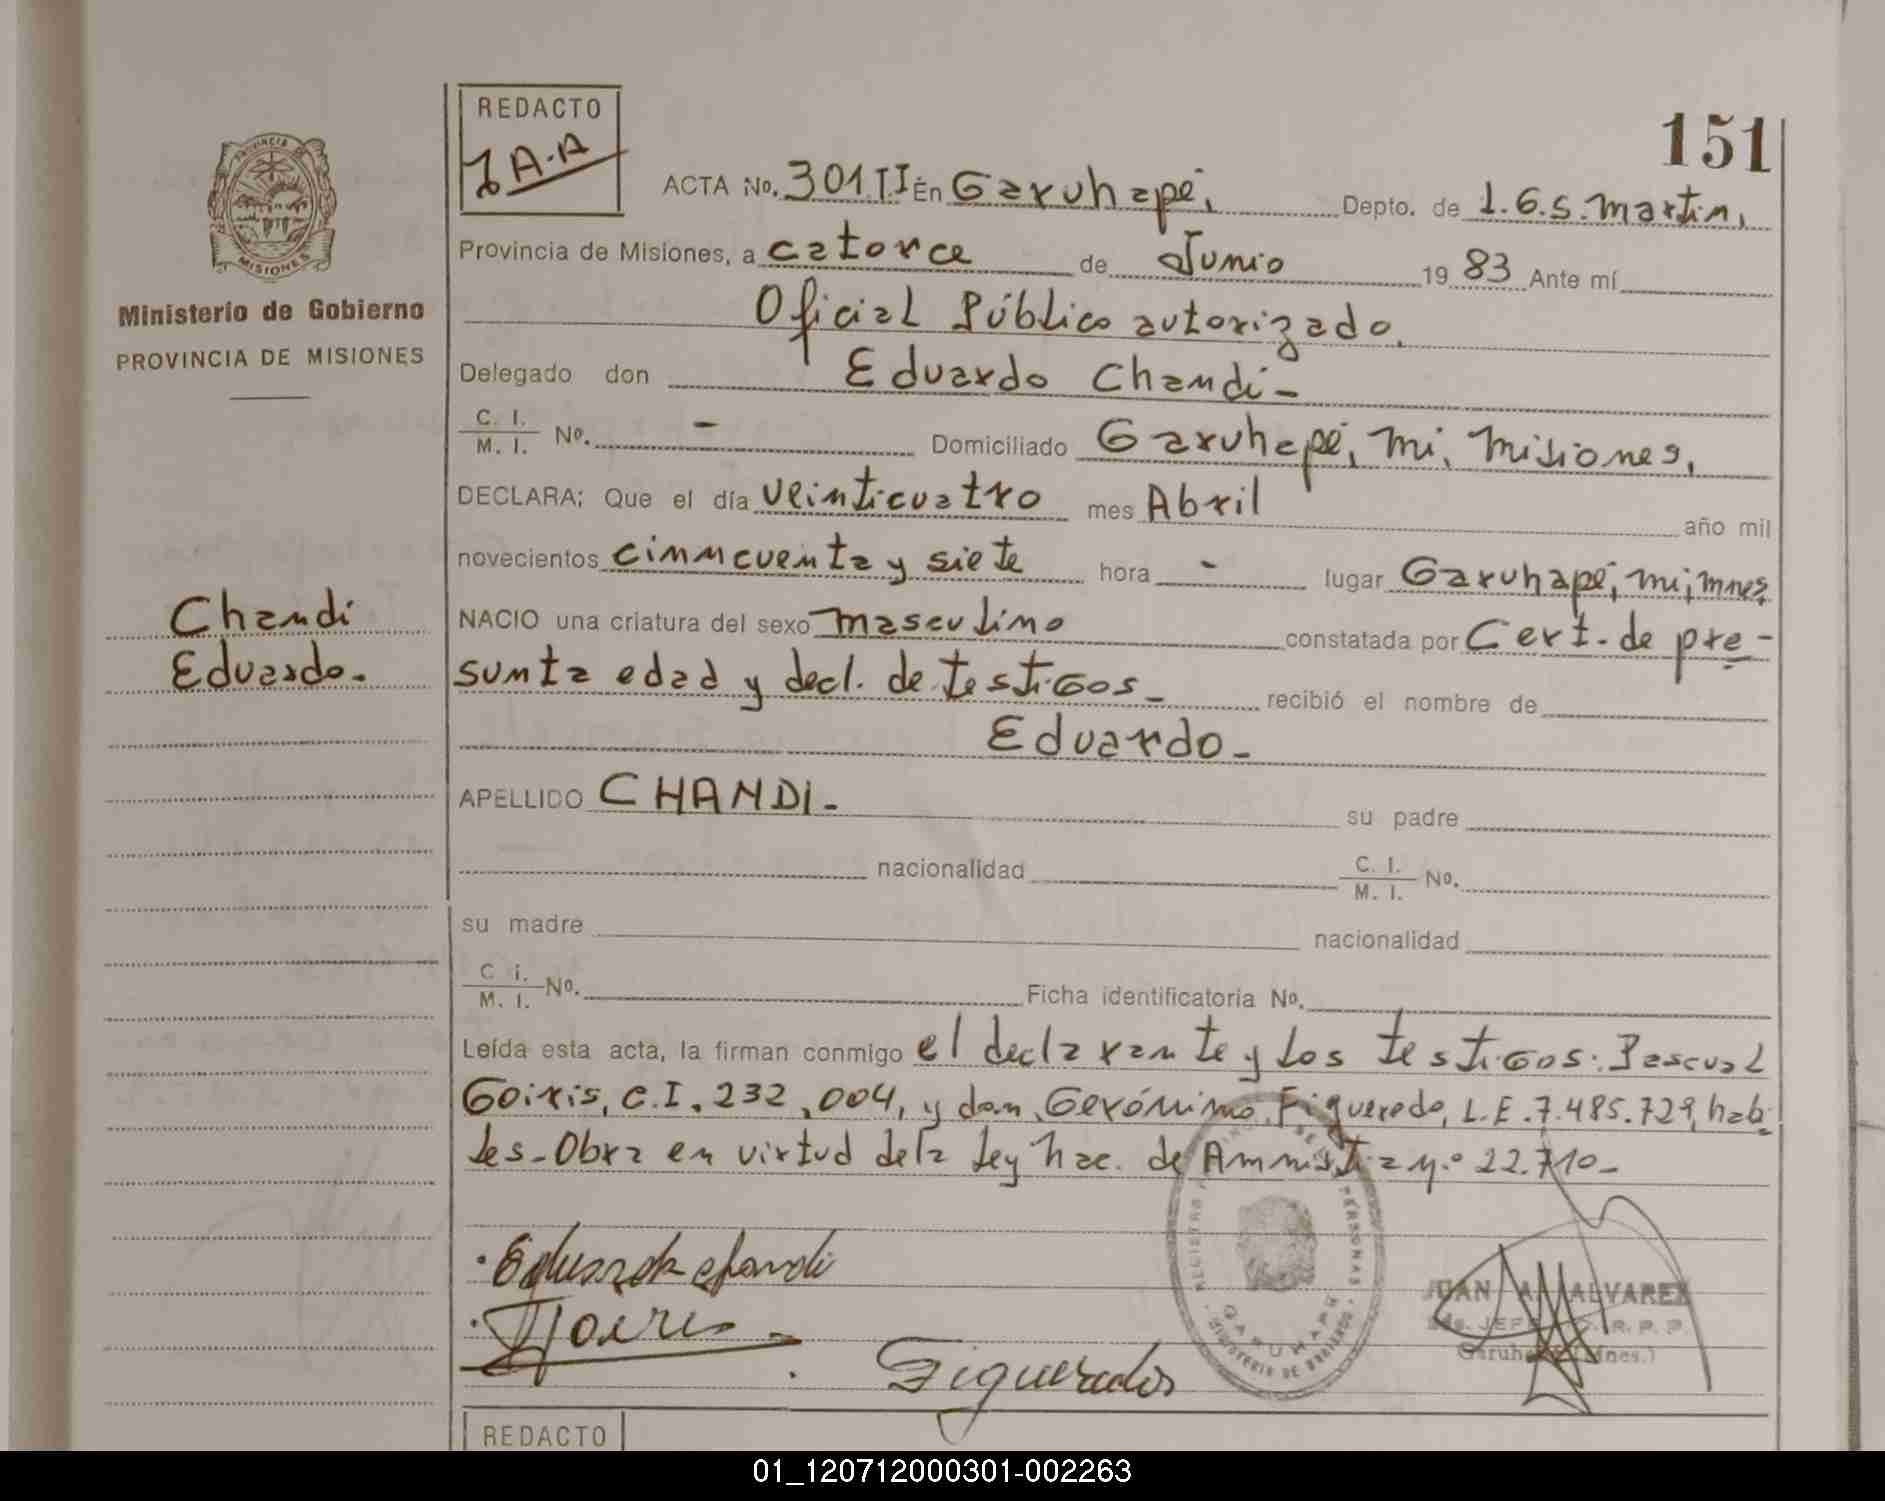 151
REDACTO
J A-A
ACTA No. 301 TI En Garuhapé, Depto. de L.G.S. Martin,
Provincia de Misiones, a catorce de Junio 19 83 Ante mí
Oficial Público autorizado.
Delegado don Eduardo Chandi-
C. I. / M. I. No. - Domiciliado Garuhapé, Mi, Misiones,
DECLARA; Que el día veinticuatro mes Abril año mil
novecientos cinmcuenta y siete hora - lugar Garuhapé, Mi, Mnes,
NACIO una criatura del sexo masculino constatada por Cert. de pre-
sunta edad y decl. de testigos- recibió el nombre de
Eduardo-
APELLIDO CHANDI- su padre
nacionalidad C. I. / M. I. No.
su madre nacionalidad
C i. / M. I. No. Ficha identificatoria No.
Leída esta acta, la firman conmigo el declarante y los testigos: Pascual
Goiris, C.I. 232,004, y don Gerónimo Figueredo, L.E. 7.485.729, habi
les-Obra en virtud de la ley nac. de Amnistia n.º 22.710-
PROVINCIA DE MISIONES
Ministerio de Gobierno
PROVINCIA DE MISIONES
Chandi
Eduardo.
Eduardo chandi
Goiris
Figueredo
GARUHAPE
MINISTERIO DE GOBIERNO
JUAN A. ALVAREZ
JEFE R. P. P.
Garuhapé (Mnes.)
REDACTO
01_120712000301-002263